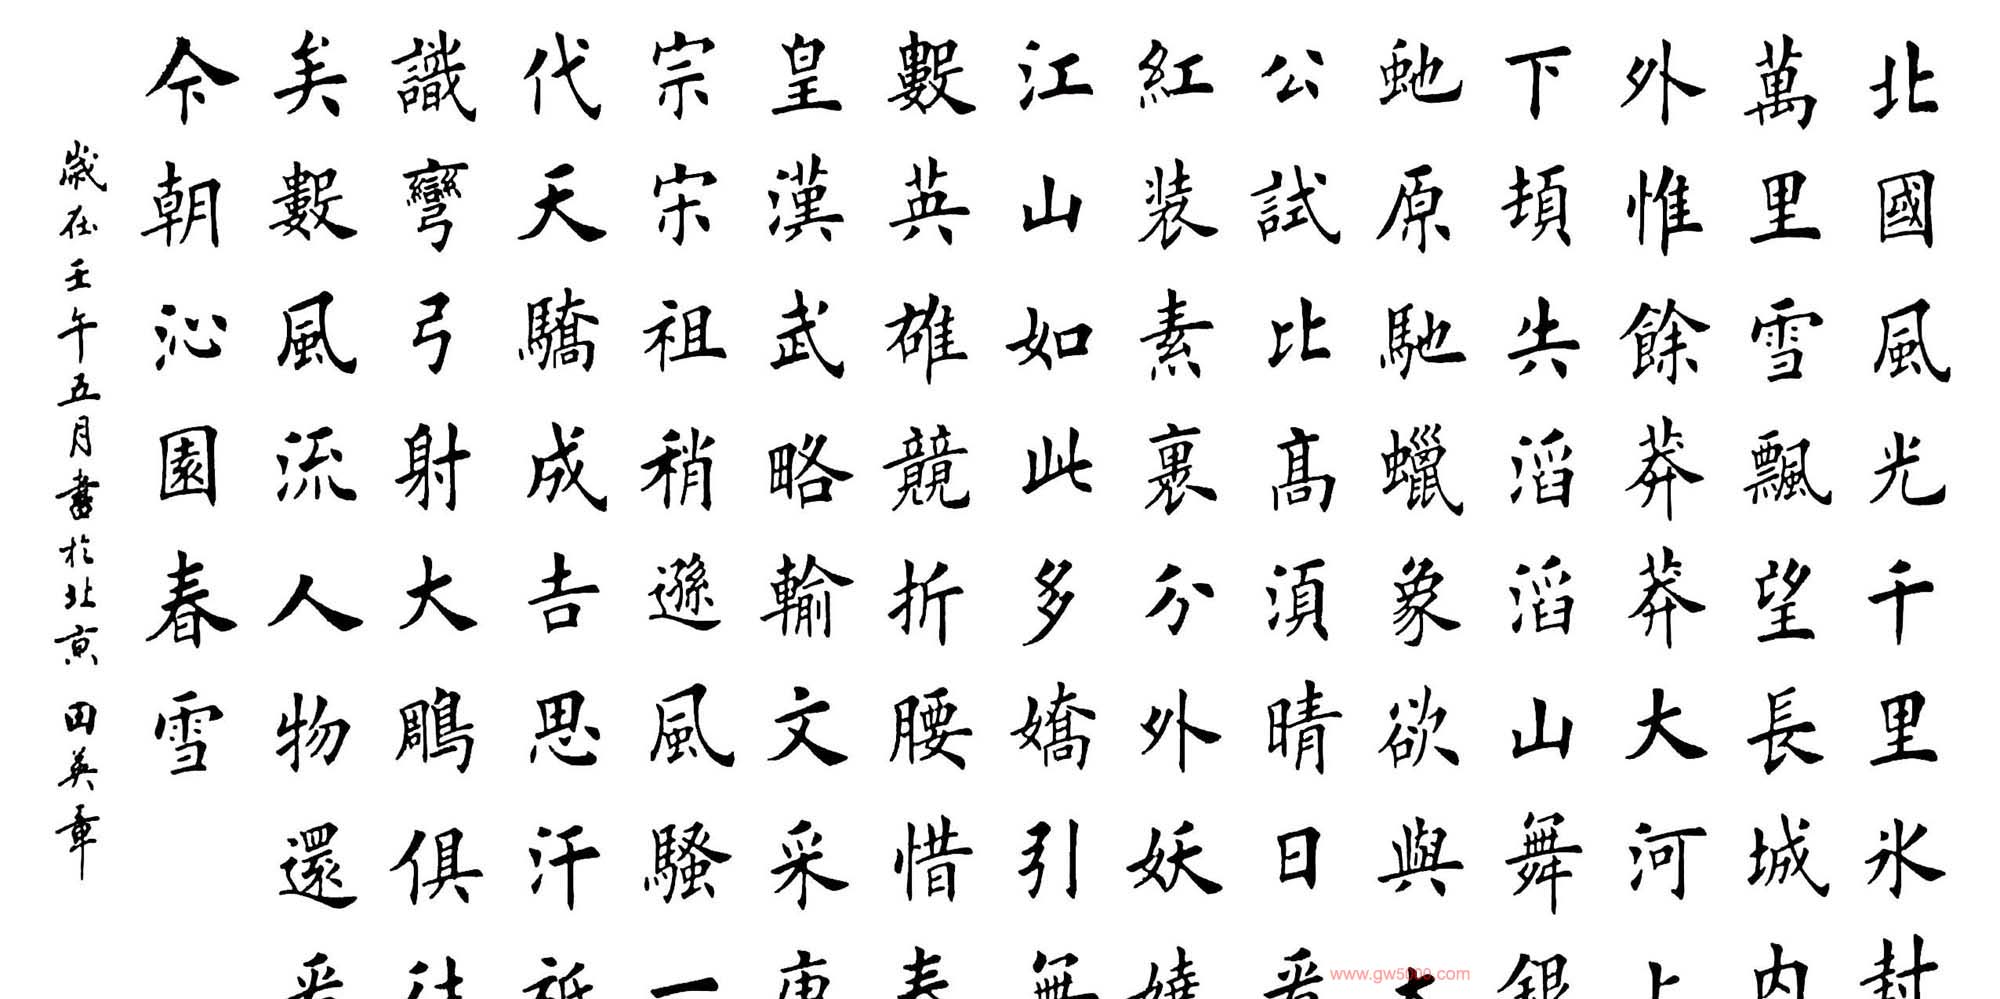 北國風光千里氷封
萬里雪飄望長城内
外惟餘莽莽大河上
下頓失滔滔山舞銀
虵原馳蠟象欲與天
公試比髙須晴日看
紅装素裹分外妖嬈
江山如此多嬌引無
數英雄競折腰惜秦
皇漢武略輸文采唐
宗宋祖稍遜風騷一
代天驕成吉思汗祗
識彎弓射大鵰俱往
矣數風流人物還看
今朝沁園春雪
歲在壬午五月書於北京 田英章
www.gw5000.com